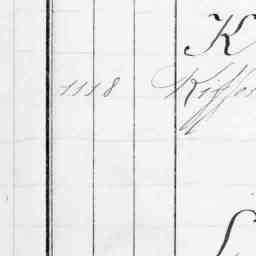 K
1118 Kiffe